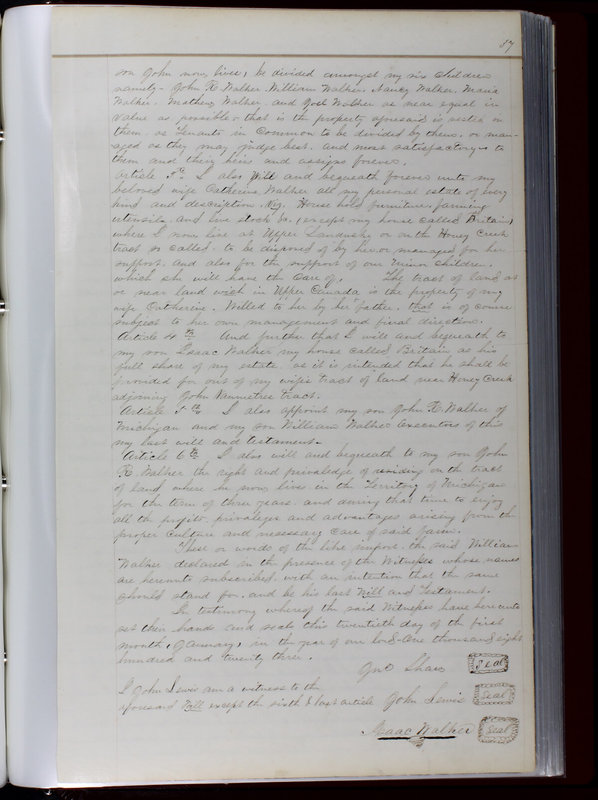 87
son John now lives, be divided amongst my six children
namely - John R Walker. William Walker. Nancy Walker. Maria
Walker. Mathew Walker. and Joel Walker as near equal in
value as possible, that is the property aforesaid is vested in
them as Tenants in Common to be divided by them. or man-
aged as they may judge best. and most satisfactory to
them and their heirs and assigns forever.
Article I also Will and bequeath forever unto my
beloved wife Catherine Walker all my personal estate of every
kind and description. Viz. House hold furniture. farming
utensils. and live stock &c, (except my house called Britain)
where I now live at Upper Sandusky or on the Honey Creek
tract so called. to be disposed of by her or managed for her
support. and also for the support of our minor children,
which she will have the care of. The tract of land at
or near land wich in Upper Canada is the property of my
wife Catherine. Willed to her by her father. that is of course
subject to her own management and final direction.
Article 4th And further that I will and bequeath to
my son Isaac Walker my house called Britain as his
full share of my estate. as it is intended that he shall be
provided for out of my wife's tract of land near Honey Creek
adjoining John Vanmetres tract.
Article 5th I also appoint my son John R. Walker of
Michigan and my son William Walker executors of this
my last will and testament.
Article 6th I also will and bequeath to my son John
R Walker the right and priviledge of residing on the tract
of land where he now lives in the Territory of Michigan
for the term of three years. and during that time to enjoy
all the profits privaleges and advantages arising from the
proper culture and necessary care of said farm.
These or words of the like import. the said William
Walker declared in the presence of the Witnesses whose names
are hereunto subscribed. with an intention that the same
should stand for. and be his last Will and Testament.
In testimony whereof the said Witnesses have hereunto
set their hands and seals this twentieth day of the first
month, (January) in the year of our lord - One thousand eight
hundred and twenty three.
Jno Shaw Seal
I John Lewis am a witness to the
aforesaid Will except the sixth & last article John Lewis Seal
Isaac Walker Seal